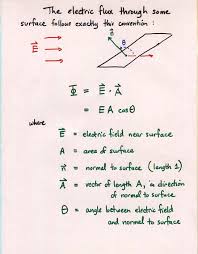 The electric flux through some
surface follows exactly this convention :
E⃗
n⃗
θ
Φ = E⃗ · A⃗
= E A cos θ
where
E⃗ = electric field near surface
A = area of surface
n⃗ = normal to surface (length 1)
A⃗ = vector of length A, in direction
of normal to surface
θ = angle between electric field
and normal to surface